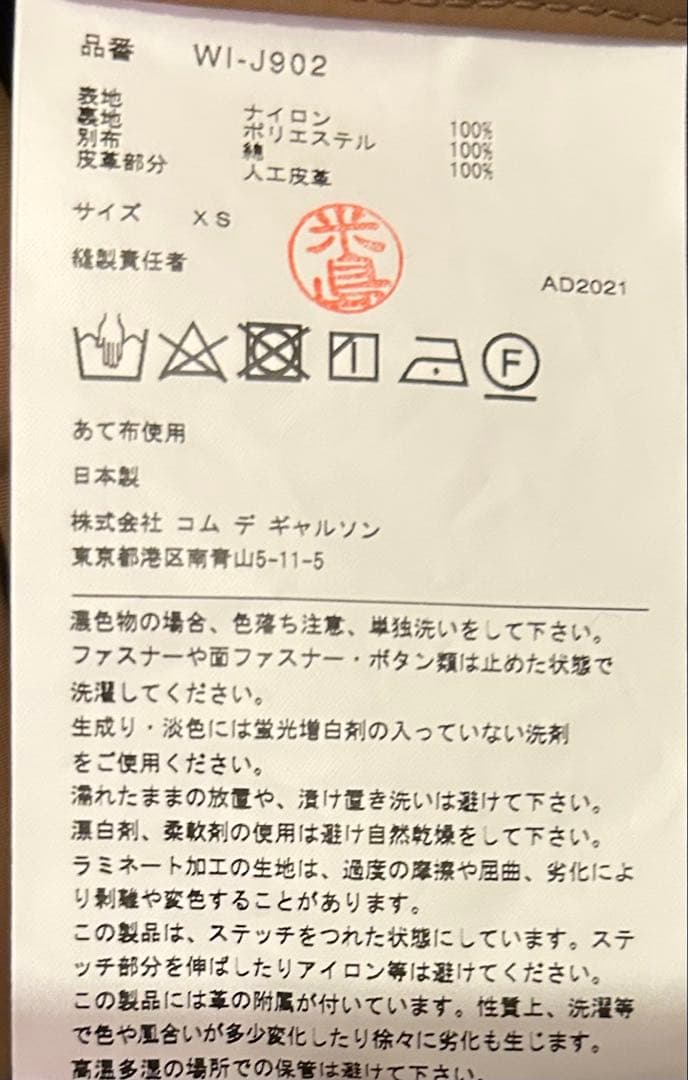 品番 WI-J902
表地 ナイロン 100%
裏地 ポリエステル 100%
別布 綿 100%
皮革部分 人工皮革
サイズ XS
米島
縫製責任者
AD2021
F
あて布使用
日本製
株式会社 コム デ ギャルソン
東京都港区南青山5-11-5
濃色物の場合、色落ち注意、単独洗いをして下さい。
ファスナーや面ファスナー・ボタン類は止めた状態で
洗濯してください。
生成り・淡色には蛍光増白剤の入っていない洗剤
をご使用ください。
濡れたままの放置や、漬け置き洗いは避けて下さい。
漂白剤、柔軟剤の使用は避け自然乾燥をして下さい。
ラミネート加工の生地は、過度の摩擦や屈曲、劣化によ
り剥離や変色することがあります。
この製品は、ステッチをつれた状態にしています。ステ
ッチ部分を伸ばしたりアイロン等は避けてください。
この製品には革の附属が付いています。性質上、洗濯等
で色や風合いが多少変化したり徐々に劣化も生じます。
高温多湿の場所での保管は避けて下さい。